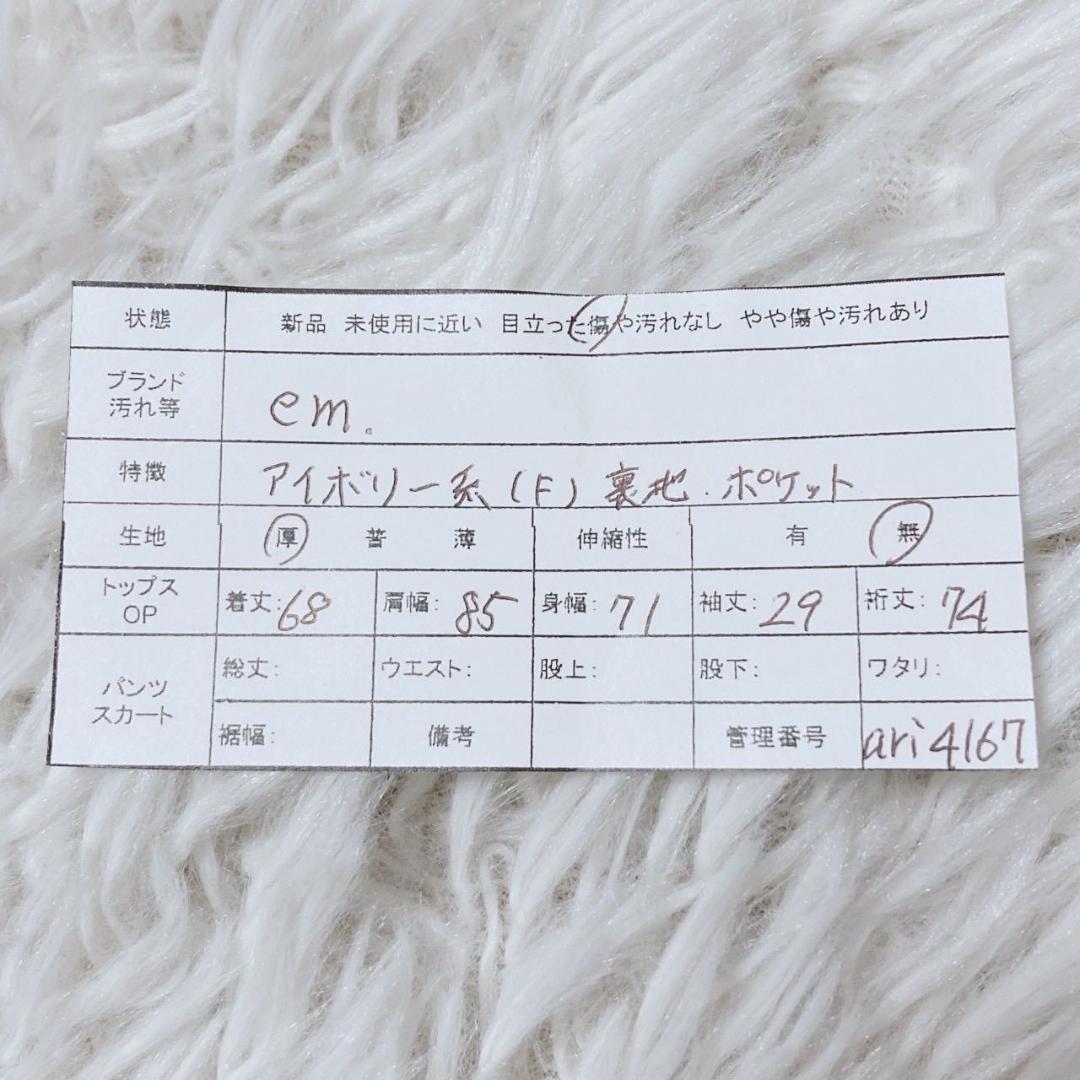 状態 新品 未使用に近い 目立った傷や汚れなし やや傷や汚れあり
ブランド
汚れ等 em.
特徴 アイボリー系(F) 裏地.ポケット
生地 厚 普 薄 伸縮性 有 無
トップス
OP 着丈:68 肩幅:85 身幅:71 袖丈:29 裄丈:74
パンツ
スカート 総丈: ウエスト: 股上: 股下: ワタリ:
裾幅: 備考 管理番号 ari4167